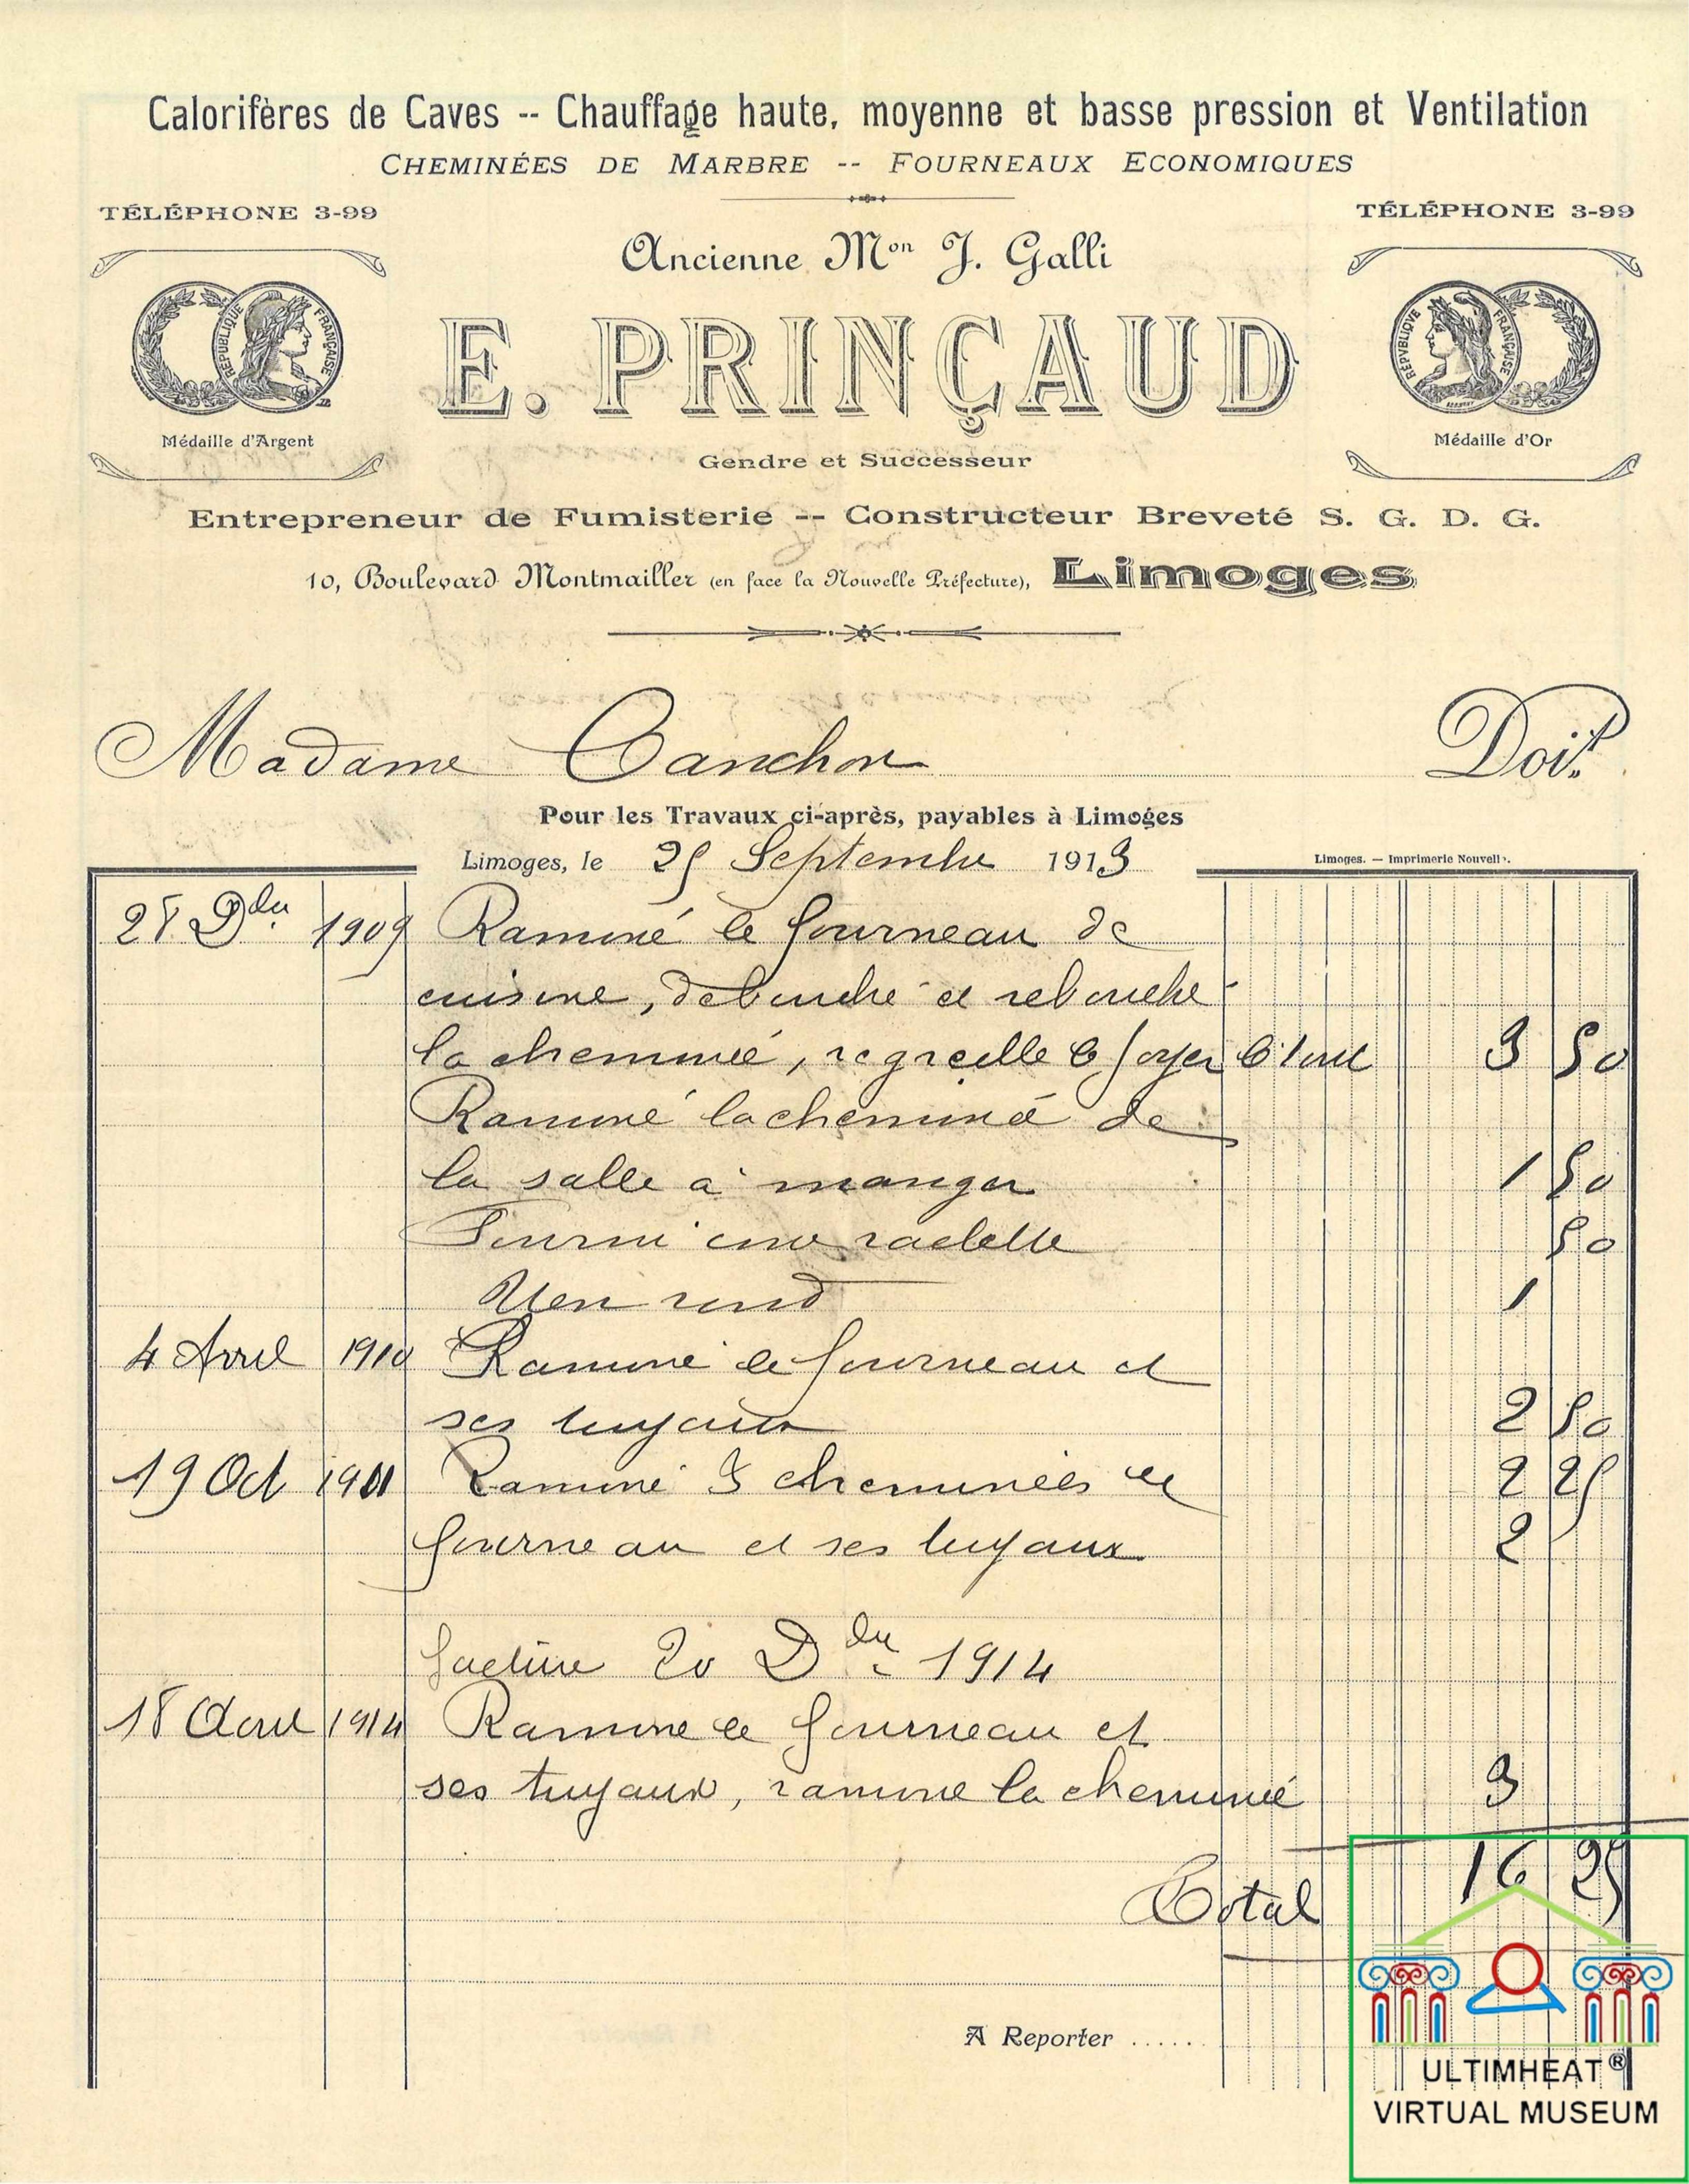 Calorifères de Caves -- Chauffage haute, moyenne et basse pression et Ventilation
CHEMINÉES DE MARBRE -- FOURNEAUX ECONOMIQUES
TÉLÉPHONE 3-99
TÉLÉPHONE 3-99
Ancienne Mon J. Galli
RÉPUBLIQUE FRANÇAISE
E. PRINÇAUD
RÉPVBLIQVE FRANÇAISE
Médaille d'Argent
Médaille d'Or
Gendre et Successeur
Entrepreneur de Fumisterie -- Constructeur Breveté S. G. D. G.
10, Boulevard Montmailler (en face la Nouvelle Préfecture), Limoges
Madame Canchon Doit
Pour les Travaux ci-après, payables à Limoges
Limoges, le 25 Septembre 1913
Limoges. — Imprimerie Nouvelle.
28 Dbre 1909 Ramoné le fourneau de
cuisine, débouché et rebouché
la cheminée, regreillé le foyer le tout 3 50
Ramoné la cheminée de
la salle à manger 1 50
Fourni une raclette 50
Un rond 1
4 Avril 1910 Ramoné le fourneau et
ses tuyaux 2 50
19 Oct 1911 Ramoné 3 cheminées le 2 25
fourneau et ses tuyaux 2
facture 20 Dbre 1914
18 Avril 1914 Ramoné le fourneau et
ses tuyaux, ramoné la cheminée 3
Total 16 25
A Reporter ......
ULTIMHEAT®
VIRTUAL MUSEUM